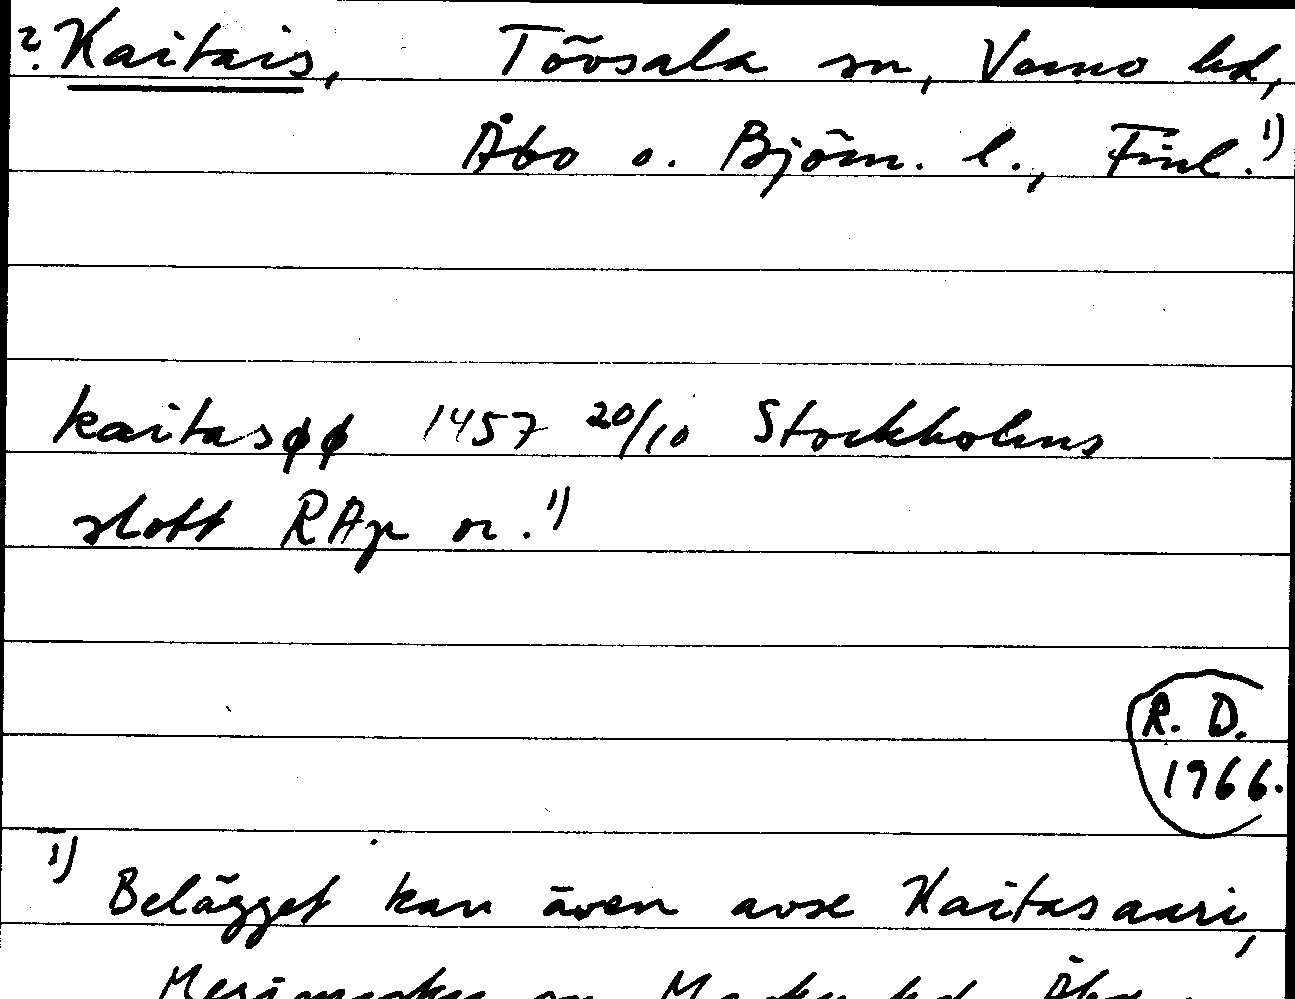 ? Kaitais, Tövsala sn, Vemo hd,
Åbo o. Björn. l., Finl.¹⁾
kaitasøø 1457 20/10 Stockholms
slott RAp or.¹⁾
R. D.
1966.
¹⁾ Belägget kan även avse Kaitasaari,
Merimasku sn Masku hd Åbo